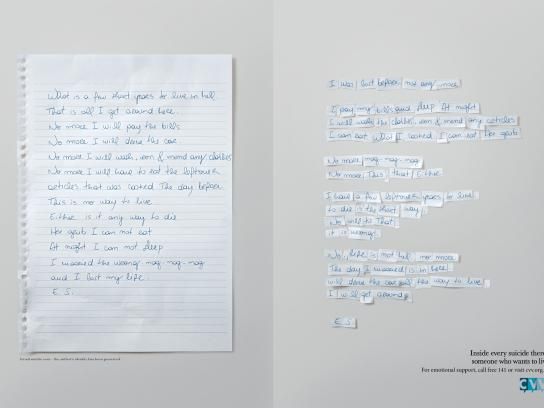 What is a few short years to live in hell.
That is all I get around here.
No more I will pay the bills
No more I will drive the car
No more I will wash, iron & mend any clothes
No more I will have to eat the leftovers
articles that was cooked the day before
This is no way to live
Either is it any way to die
Her grub I can not eat
At night I can not sleep
I married the wrong nag-nag-nag
and I lost my life.
E. S.
I was lost before not any more
I pay my bills and sleep at night
I will wash the clothes, iron & mend any articles
I can eat what I cooked I can eat Her grub
No more nag-nag-nag
No more This that Either
I have a few leftovers years to live
to die is the short way
No will to That
it is wrong
No, life is not hell no more
The day I married is in here
will drive the car and the way to live
I will get around
E S
Inside every suicide there
someone who wants to liv
For emotional support, call free 141 or visit cvv.org.
CVV